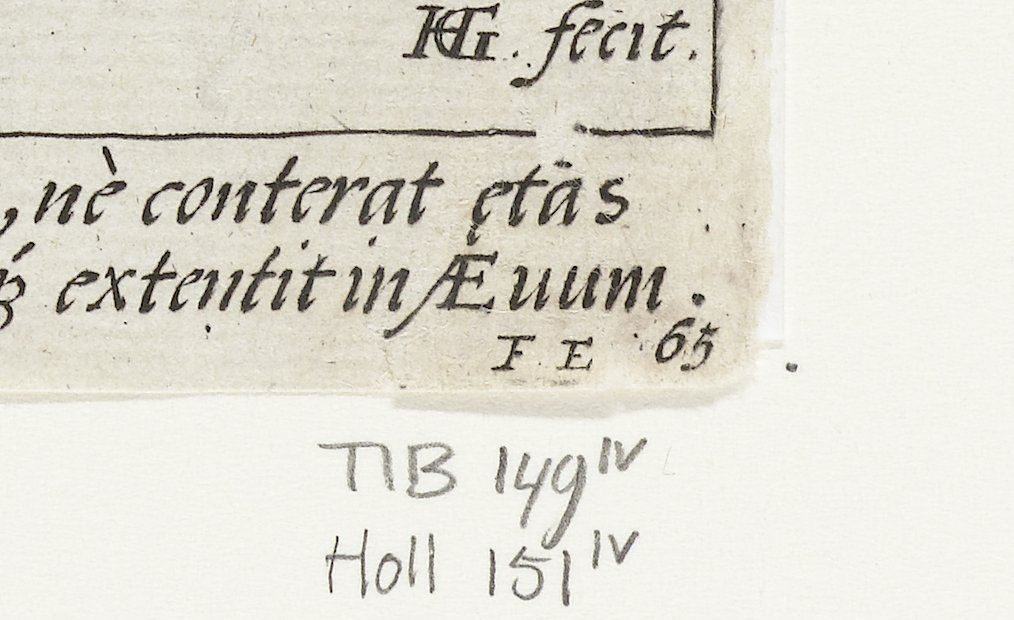 HG. fecit.
, nè conterat ętas
extentit in Æuum.
F E 65
TIB 149 IV
Holl 151 IV